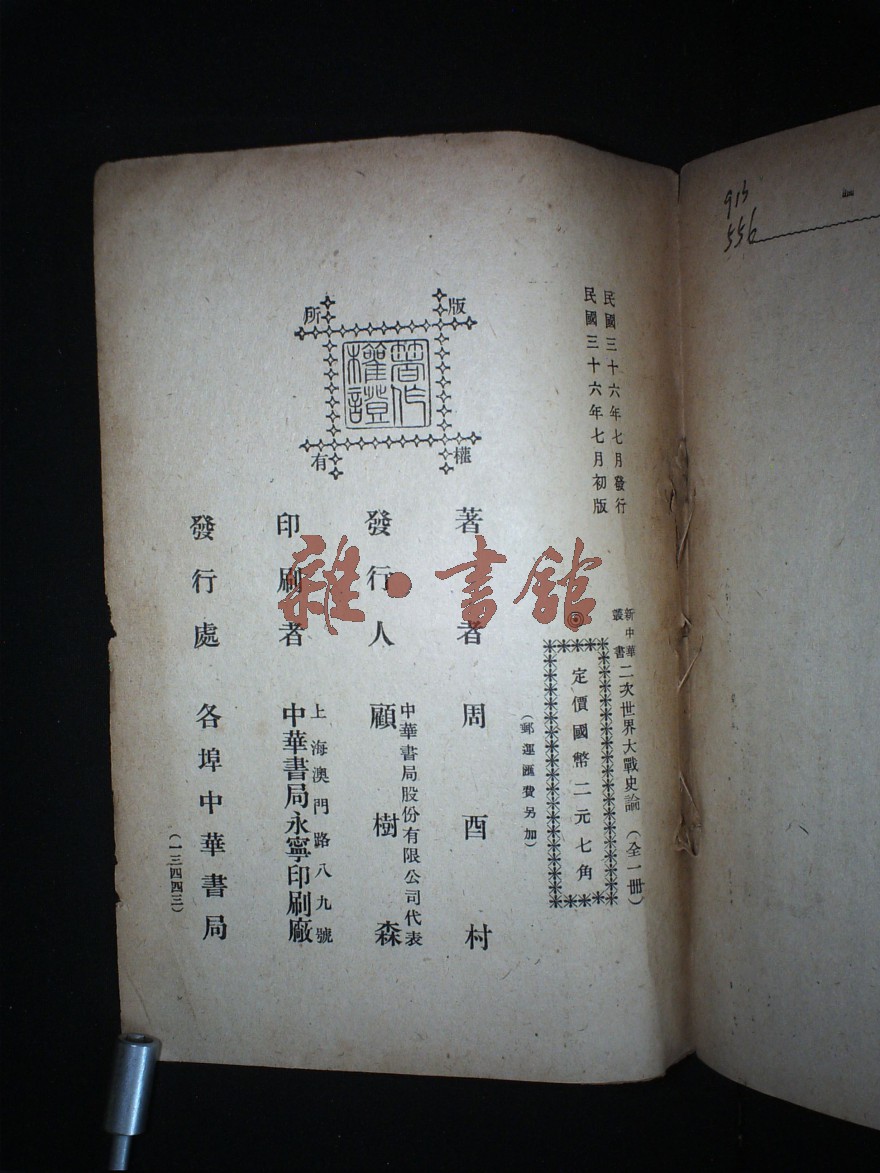 民國三十六年七月發行
民國三十六年七月初版
新中華叢書
二次世界大戰史論（全一冊）
⑤
定價國幣二元七角
（郵運匯費另加）
版權所有
著作權證
著者 周酉村
發行人 中華書局股份有限公司代表 顧樹森
印刷者 上海澳門路八九號 中華書局永寧印刷廠
發行處 各埠中華書局
（一三四四三）
雜·書館
913
556